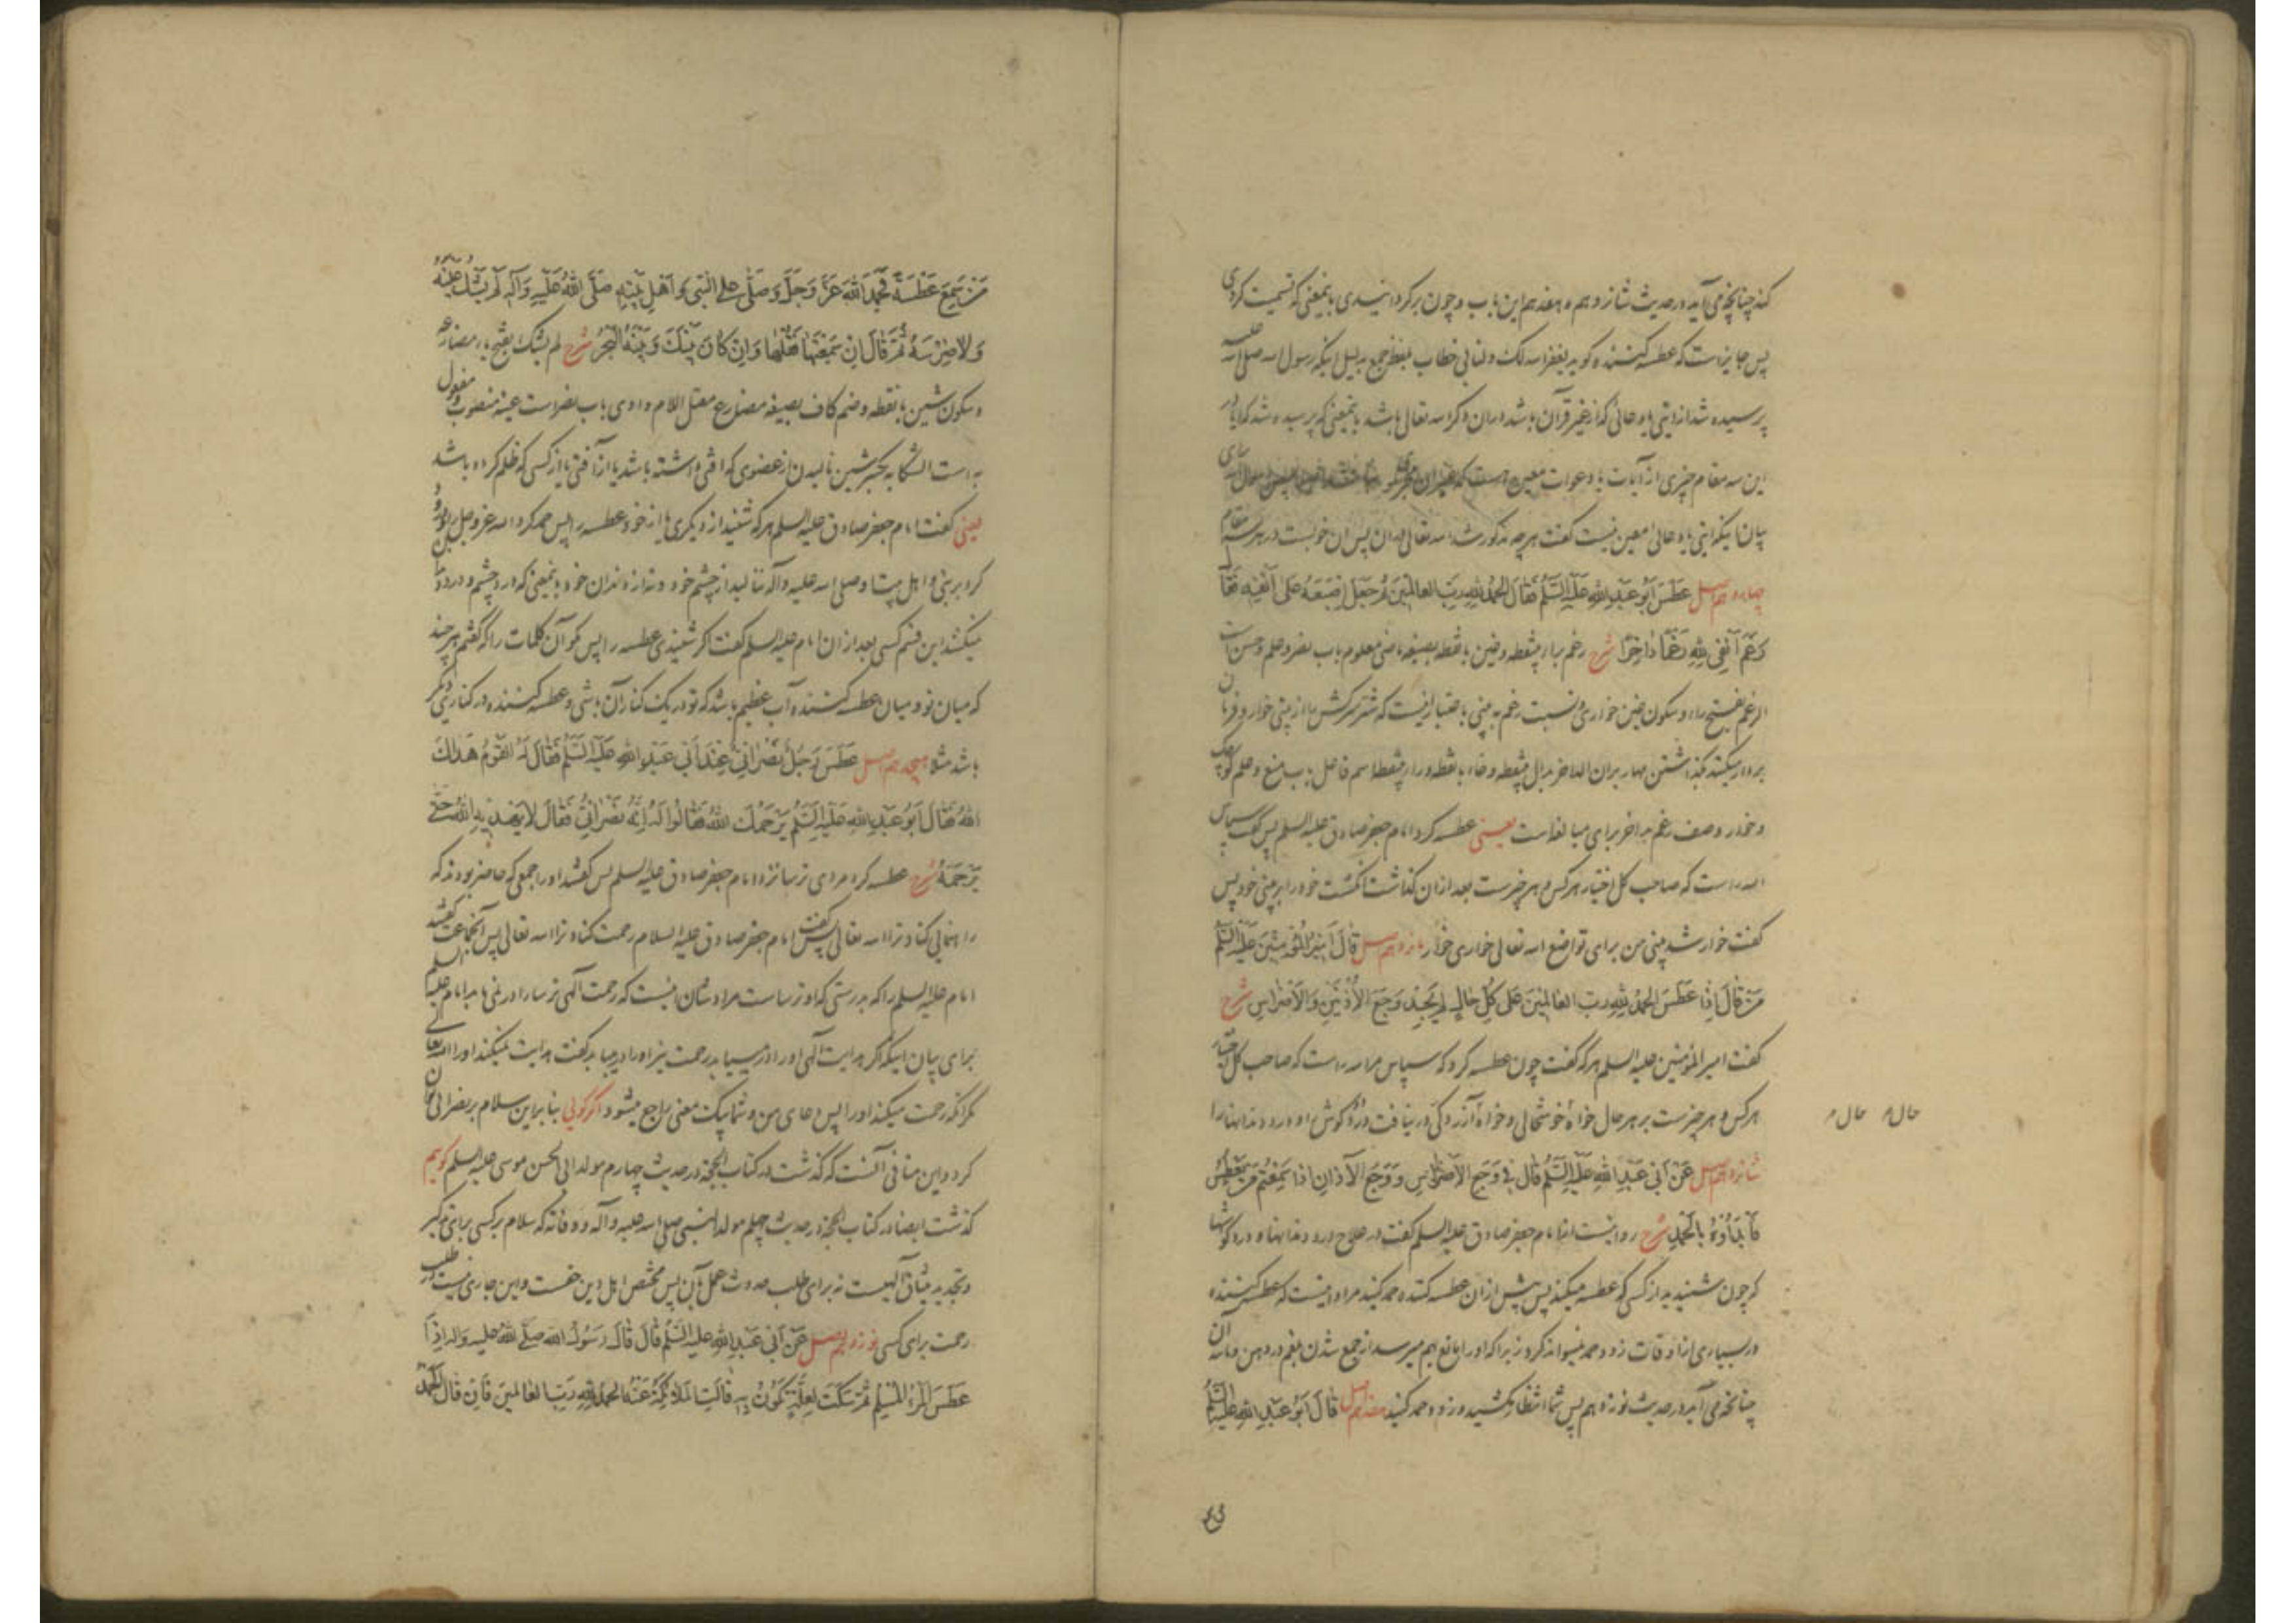 کند چنانچه می آید در حدیث شانزدهم و هفدهم این باب و چون برگردانیدی بانمعنی که تسمیت کردی
پس جایزست که عطسه کننده گوید یغفر الله لک و لنا بی خطاب بلفظ جمع بدلیل اینکه رسول الله صلی الله علیه
پرسیده شد از ایتی یا دعائی که از غیر قرآن باشد دران ذکر الله تعالی باشد بانمعنی که پرسیده شد که ایا در
این سه مقام چیزی از آیات یا دعوات معین هست که غیر ان
بیان اینکه ایتی یا دعائی معین نیست گفت هر چه مذکور شد الله تعالی دران پس ان خوبست در هر سه مقام
چهاردهم اصل عَطَسَ اَبُو عَبْدِ اللهِ عَلَيْهِ السَّلٰمُ فَقَالَ الْحَمْدُ لِلّٰهِ رَبِّ الْعَالَمِينَ ثُمَّ جَعَلَ اِصْبَعَهُ عَلىٰ اَنْفِهِ فَقَالَ
رَغَمَ اَنْفِي لِلّٰهِ رَغْمًا دَاخِرًا شرح رغم براء بینقطه و غین با نقطه بصیغه ماضی معلوم باب نصر و علم و حسن است
الرغم بفتح راء و سکون غین خواری و نسبت رغم به بینی باعتبار اینست که شتر سرکش را از بینی خوار و فرمان
بردار میکنند بگذاشتن مهار بران الداخر بدال بینقطه و خاء با نقطه و راء بینقطه اسم فاعل باب منع و علم کوچک
و خوار وصف رغم بداخر برای مبالغه است یعنی عطسه کرد امام جعفر صادق علیه السلم پس گفت سپاس
الله راست که صاحب کل اختیار هر کس و هر چیزست بعد ازان گذاشت انگشت خود را بر بینی خود پس
گفت خوار شد بینی من برای تواضع الله تعالی خواری خوار پانزدهم اصل قَالَ اَمِيرُ الْمُؤْمِنِينَ عَلَيْهِ السَّلٰمُ
مَنْ قَالَ اِذَا عَطَسَ الْحَمْدُ لِلّٰهِ رَبِّ الْعَالَمِينَ عَلىٰ كُلِّ حَالٍ لَمْ يَجِدْ وَجَعَ الْاُذُنَيْنِ وَالْاَضْرَاسِ شرح
گفت امیر المؤمنین علیه السلم هر که گفت چون عطسه کرد که سپاس مر الله راست که صاحب کل اختیار
هر کس و هر چیزست بر هر حال خواه خوشحالی و خواه آزردگی در نیافت درد دو گوش او و درد دندانها را
حال م حال م
شانزدهم اصل عَنْ اَبِي عَبْدِ اللهِ عَلَيْهِ السَّلٰمُ قَالَ فِي وَجَعِ الْاَضْرَاسِ وَ وَجَعِ الْآذَانِ اِذَا سَمِعْتُمْ مَنْ يَعْطِسُ
فَابْدَأُوهُ بِالْحَمْدِ شرح روایتست از امام جعفر صادق علیه السلم گفت در علاج درد دندانها و درد گوشها
که چون شنیدید از کسی که عطسه میکند پس پیش ازان عطسه کننده حمد کنید مراد اینست که عطسه کننده
در بسیاری از اوقات زود حمد نمیتواند کرد زیرا که او را مانع بهم میرسد از جمع شدن بلغم در دهن و مانند آن
چنانچه می آید در حدیث نوزدهم پس شما انتظار نکشید و زود حمد کنید هفدهم اصل قَالَ اَبُو عَبْدِ اللهِ عَلَيْهِ السَّلٰمُ
مَنْ سَمِعَ عَطْسَةً فَحَمِدَ اللهَ عَزَّ وَجَلَّ وَصَلّٰى عَلَى النَّبِيِّ وَ اَهْلِ بَيْتِهِ صَلَّى اللهُ عَلَيْهِ وَآلِهِ لَمْ يَشْكُ عَيْنَهُ
وَلَا ضِرْسَهُ ثُمَّ قَالَ اِنْ سَمِعْتَهَا فَقُلْهَا وَاِنْ كَانَ بَيْنَكَ وَبَيْنَهُ الْبَحْرُ شرح لم یشک بفتح یاء مضارعه
و سکون شین با نقطه و ضم کاف بصیغه مضارع معتل اللام واوی باب نصر است عینه منصوب و مفعول
به است الشکایه بکسر شین نالیدن از عضوی که آفتی داشته باشد یا از آفتی یا از کسی که ظلم کرده باشد
یعنی گفت امام جعفر صادق علیه السلم هر که شنید از دیگری یا از خود عطسه را پس حمد کرد الله عز وجل را و درود
کرد بر نبی و اهل بیت او صلی الله علیه و آله ننالید از چشم خود و نه از دندان خود بانمعنی که درد چشم و درد دندان
نمیکشد این قسم کسی بعد ازان امام علیه السلم گفت اگر شنیدی عطسه را پس گو آن کلمات را که گفتم هر چند
که میان تو و میان عطسه کننده آب عظیم باشد که تو در یک کنار آن باشی و عطسه کننده در کناری دیگر
باشد مثلا هیجدهم اصل عَطَسَ رَجُلٌ نَصْرَانِيٌّ عِنْدَ اَبِي عَبْدِ اللهِ عَلَيْهِ السَّلٰمُ فَقَالَ لَهُ الْقَوْمُ هَدَاكَ
اللهُ فَقَالَ اَبُو عَبْدِ اللهِ عَلَيْهِ السَّلٰمُ يَرْحَمُكَ اللهُ فَقَالُوا لَهُ اِنَّهُ نَصْرَانِيٌّ فَقَالَ لَا يَهْدِيهِ اللهُ حَتّٰى
يَرْحَمَهُ شرح عطسه کرد مردی ترسا نزد امام جعفر صادق علیه السلم پس گفتند او را جمعی که حاضر بودند که
راهنمائی کناد ترا الله تعالی پس گفت امام جعفر صادق علیه السلام رحمت کناد ترا الله تعالی پس آنجماعت گفتند
امام علیه السلم را که بدرستی که او ترساست مراد شان اینست که رحمت آلهی ترسا را در نمی یابد امام علیه السلم
برای بیان اینکه اگر هدایت آلهی او را در مییابد رحمت نیز او را در مییابد گفت هدایت نمیکند او را الله تعالی
مگر آنکه رحمت میکند او را پس دعای من و شما بیک معنی راجع میشود اگر گوئی بنا براین سلام بر نصرانی توان
کرد و این منافی آنست که گذشت در کتاب الحجة در حدیث چهارم مولد ابی الحسن موسی علیه السلم گویم
گذشت ایضا در کتاب الحجة در حدیث چهلم مولد النبی صلی الله علیه و آله و وفاته که سلام بر کسی برای تذکیر
و تجدید میثاق آلهیست نه برای طلب حدوث عمل بآن پس مختص اهل دین حقست و این جاری نیست در طلب
رحمت برای کسی نوزدهم اصل عَنْ اَبِي عَبْدِ اللهِ عَلَيْهِ السَّلٰمُ قَالَ قَالَ رَسُولُ اللهِ صَلَّى اللهُ عَلَيْهِ وَآلِهِ اِذَا
عَطَسَ الْمَرْءُ الْمُسْلِمُ ثُمَّ سَكَتَ لِعِلَّةٍ تَكُونُ بِهِ قَالَتِ الْمَلَائِكَةُ عَنْهُ الْحَمْدُ لِلّٰهِ رَبِّ الْعَالَمِينَ فَاِنْ قَالَ الْحَمْدُ